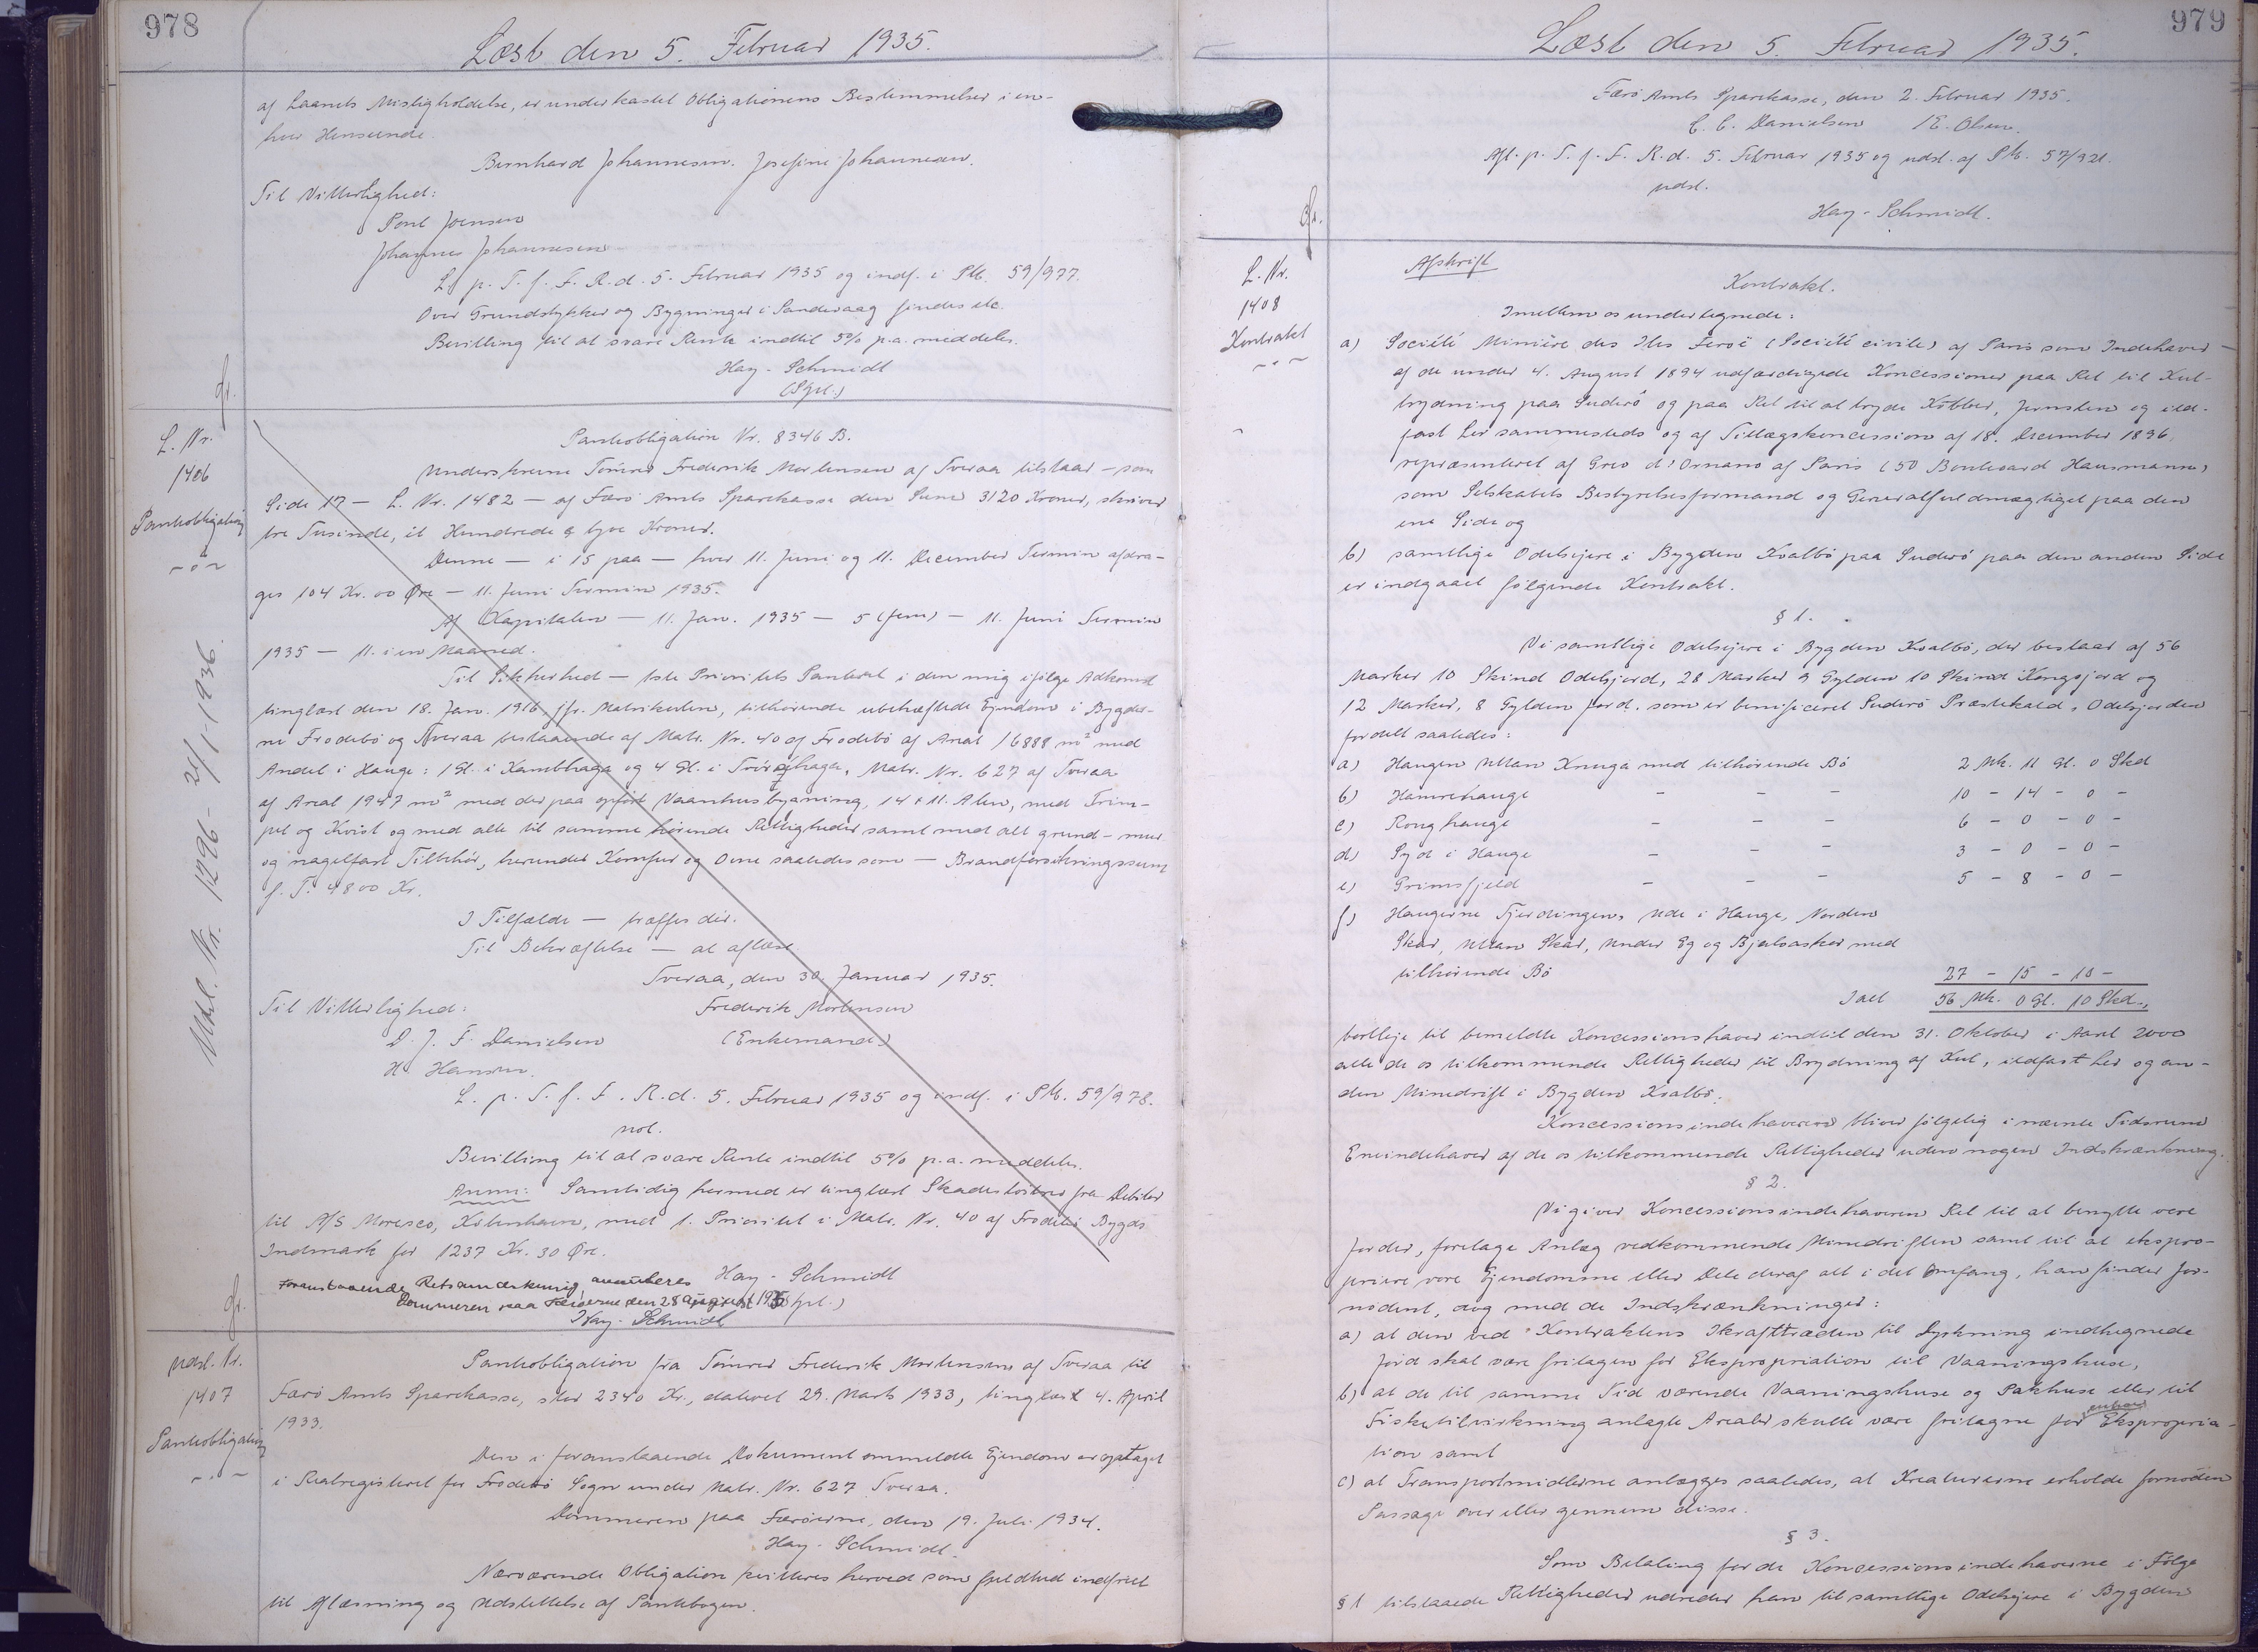 978
Læst den 5. Februar 1935.
af Laanets Misligholdelse, er underkastet Obligationens Bestemmelser i en-
hver Henseende.
Bernhard Johannesen. Josefine Johannesen.
Til Vitterlighed:
Poul Joensen
Johannes Johannesen
L. p. T. f. F. R. d. 5. Februar 1935 og indf. i Pb. 59/977.
Over Grundstykker og Bygninger i Sandvaag findes etc.
Bevilling til at svare Rente indtil 5% p.a. meddeles.
Hay-Schmidt
(Spl.)
Gr.
L. Nr.
1406
Pantobligation
Pantobligation Nr. 8346 B.
Underskrevne Tømrer Frederik Mortensen af Tveraa tilstaar - som
Side 17 - L. Nr. 1482 - af Færø Amts Sparekasse den Sum 3120 Kroner, skriver
tre Tusinde, et Hundrede & tyve Kroner.
Denne - i 15 paa - hver 11. Juni og 11. December Termin afdra-
ges 104 Kr. 00 Øre - 11. Juni Termin 1935.
Af Kapitalen - 11. Jan. 1935 - 5 (fem) - 11. Juni Termin
1935 - 11. i en Maaned.
Til Sikkerhed - 1ste Prioritets Panteret i den mig ifølge Adkomst
tinglæst den 18. Jan. 1916, jfr. Matrikulen, tilhørende ubehæftede Ejendom i Bygder-
ne Frodebø og Tveraa bestaaende af Matr. Nr. 40 af Frodebø af Areal 16888 m² med
Andel i Hauge: 1 Gl. i Kambhaga og 4 Gl. i Tvöráhaga, Matr. Nr. 627 af Tveraa
af Areal 1947 m² med der paa opført Vaanhusbygning, 14 x 11. Alen, med Frim-
pel og Kvist og med alle til samme hørende Rettigheder samt med alt grund- mur
og nagelfast Tilbehør, herunder Komfur og Ovne saaledes som - Brandforsikringssum
p. T. 4800 Kr.
I Tilfælde - træffes der.
Til Bekræftelse - at aflæse.
Tveraa, den 30. Januar 1935.
Til Vitterlighed: Frederik Mortensen
D. J. F. Danielsen (Enkemand)
H. Hansen.
L. p. T. f. F. R. d. 5. Februar 1935 og indf. i Pb. 59/978.
not.
Bevilling til at svare Rente indtil 5% p.a. meddeles.
Anm: Samtidig hermed er tinglæst Skadesløsbrev fra Debitor
til A/S Moresco, København, med 1. Prioritet i Matr. Nr. 40 af Frodebø Bygds
Indmark for 1237 Kr. 30 Øre.
Hay-Schmidt
(Spl.)
Foranstaaende Retsanmærkning annulleres
Dommeren paa Færøerne den 28 august 1935
Hay-Schmidt
Udsl. Nr. 1296 - 21/1-1936.
Gr.
Udsl. Nr.
1407
Pantobligation
Pantobligation fra Tømrer Frederik Mortensen af Tveraa til
Færø Amts Sparekasse, stor 2340 Kr., dateret 29. Marts 1933, tinglæst 4. April
1933.
Den i foranstaaende Dokument ommeldte Ejendom er optaget
i Realregisteret for Frodebø Sogn under Matr. Nr. 627 Tveraa.
Dommeren paa Færøerne, den 19. Juli 1934.
Hay-Schmidt.
Nærværende Obligation kvitteres herved som fuldtud indfriet
til Aflæsning og Udslettelse af Pantebogen.
979
Læst den 5. Februar 1935.
Færø Amts Sparekasse, den 2. Februar 1935.
C. C. Danielsen /E. Olsen.
Afl. p. T. f. F. R. d. 5. Februar 1935 og udsl. af Pb. 57/921.
udsl.
Hay-Schmidt.
Gr.
L. Nr.
1408
Kontrakt
Afskrift
Kontrakt.
Imellem os undertegnede:
a) Société Minière des Iles Feroë (Société civile) af Paris som Indehaver
af de under 4. August 1894 udfærdigede Koncessioner paa Ret til Kul-
brydning paa Suderø og paa Ret til at bryde Kobber, Jernsten og ild-
fast Ler sammesteds og af Tillægskoncession af 18. December 1896,
repræsenteret af Greve d'Ornano af Paris (50 Boulevard Hausmann)
som Selskabets Bestyrelsesformand og Generalfuldmægtiget paa den
ene Side og
b) samtlige Odelsejere i Bygden Kvalbø paa Suderø paa den anden Side
er indgaaet følgende Kontrakt.
§ 1.
Vi samtlige Odelsejere i Bygden Kvalbø, der bestaar af 56
Marker 10 Skind Odelsjord, 28 Marker 9 Gylden 10 Skind Kongsjord og
12 Marker, 8 Gylden Jord, som er beneficeret Suderø Præstekald, Odelsjorden
fordelt saaledes:
a) Haugen Uttan Knuga med tilhørende Bø 2 Mk. 11 Gl. 0 Skd
b) Hamrehauge - - - 10 - 14 - 0 -
c) Ronghauge - - - 6 - 0 - 0 -
d) Syd i Hauge - - - 3 - 0 - 0 -
e) Grimsfjeld - - - 5 - 8 - 0 -
f) Haugerne Fjerdingen, Ude i Hauge, Norden
Skar, Uttan Skar, Under Eg og Bjelvasker med
tilhørende Bø 27 - 15 - 10 -
Ialt 56 Mk. 0 Gl. 10 Skd.,
bortleje til bemeldte Koncessionshaver indtil den 31. Oktober i Aaret 2000
alle de os tilkommende Rettigheder til Brydning af Kul, ildfast Ler og an-
den Minedrift i Bygden Kvalbø.
Koncessionsindehaveren bliver følgelig i nævnte Tidsrum
Eneindehaver af de os tilkommende Rettigheder uden nogen Indskrænkning.
§ 2.
Vi giver Koncessionsindehaveren Ret til at benytte vore
Jorder, foretage Anlæg vedkommende Minedriften samt til at ekspro-
priere vore Ejendomme eller Dele deraf alt i det Omfang, han finder for-
nødent, dog med de Indskrænkninger:
a) at den ved Kontraktens Ikrafttræden til Dyrkning indhegnede
Jord skal være fritagen for Ekspropriation til Vaaningshuse,
b) at de til samme Tid værende Vaaningshuse og Pakhuse eller til
Fisketilvirkning anlagte Arealer skulle være fritagne for enhver Ekspropria-
tion samt
c) at Transportmidlerne anlægges saaledes, at Kreaturerne erholde fornøden
Passage over eller gennem disse.
§ 3.
Som Betaling for de Koncessionsindehaverne i Følge
§ 1 tilstaaede Rettigheder udreder han til samtlige Odelsejere i Bygden